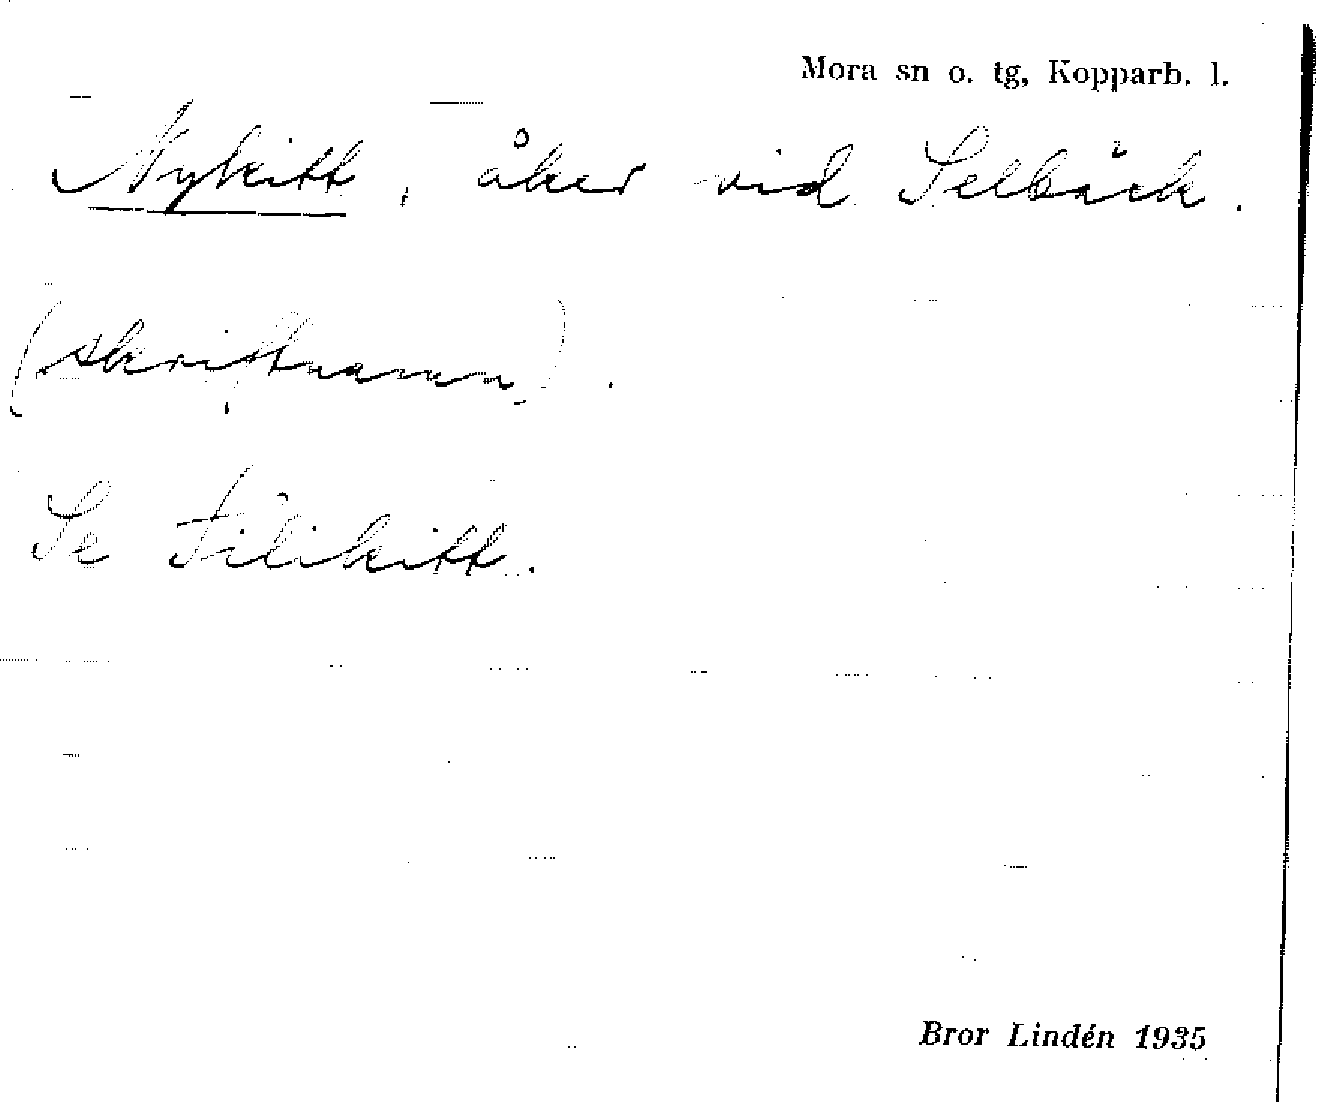 Mora sn o. tg, Kopparb. l.
Nykitt, åker vid Selbäck.
(skriftnamn).
Se Filikitt.
Bror Lindén 1935